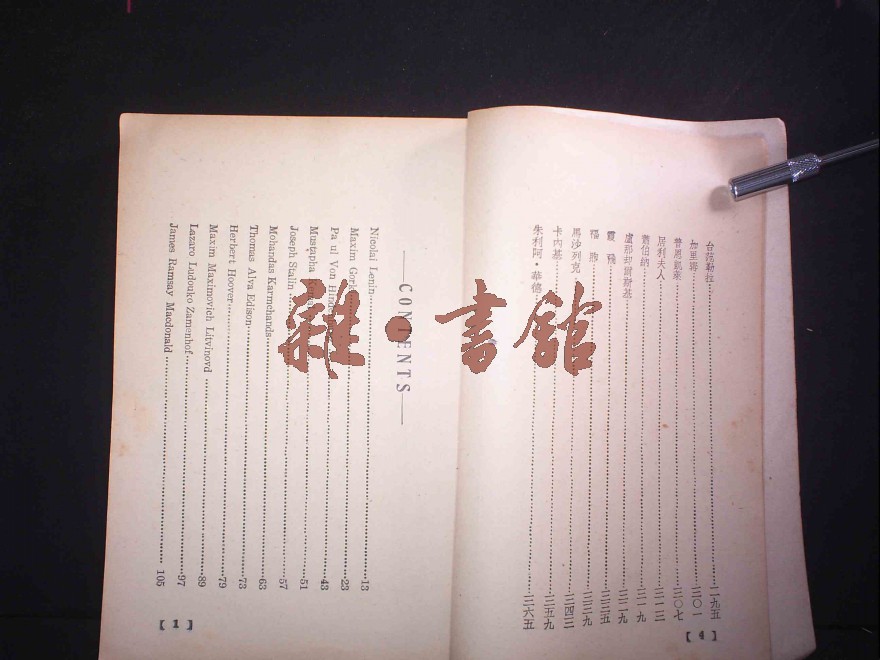 台莪勒拉……一九五
加里寧……二〇一
普恩凱萊……二〇七
居利夫人……二一三
蕭伯納……二一九
盧那却爾斯基……二二九
霞飛……二三五
福煦……二三九
馬沙列克……二四三
卡內基……二五九
朱利阿·華德……二六五
【4】
—CONTENTS—
Nicolai Lenin……13
Maxim……23
Pa ul Von……43
Mustapha……51
Joseph Stalin……57
Mohandas Karmchands……63
Thomas Alva Edison……73
Herbert Hoover……79
Maxim Maximovich Litvinovd……89
Lazaro Ludouko Zamenhof……97
James Ramsay Macdonald……105
【1】
雜·書館